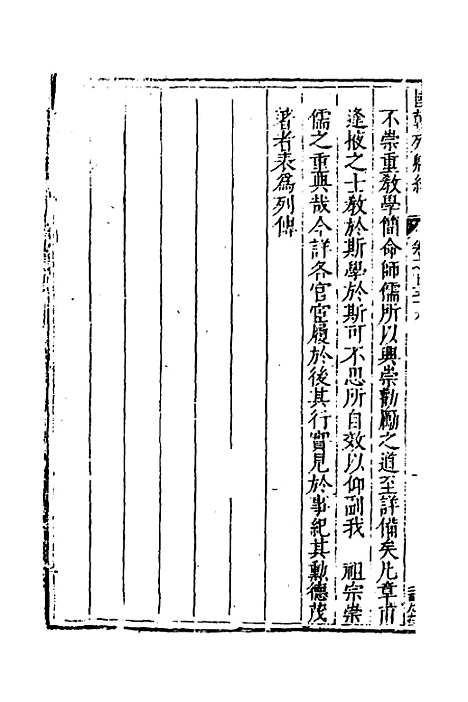 國朝列卿紀 卷一百五十九
不崇重敎學簡命師儒所以興崇勸勵之道至詳備矣凡章甫
逢掖之士敎於斯學於斯可不思所自效以仰副我 祖宗崇
儒之重典哉今詳各官宦履於後其行實見於事紀其勳德茂
著者表爲列傳